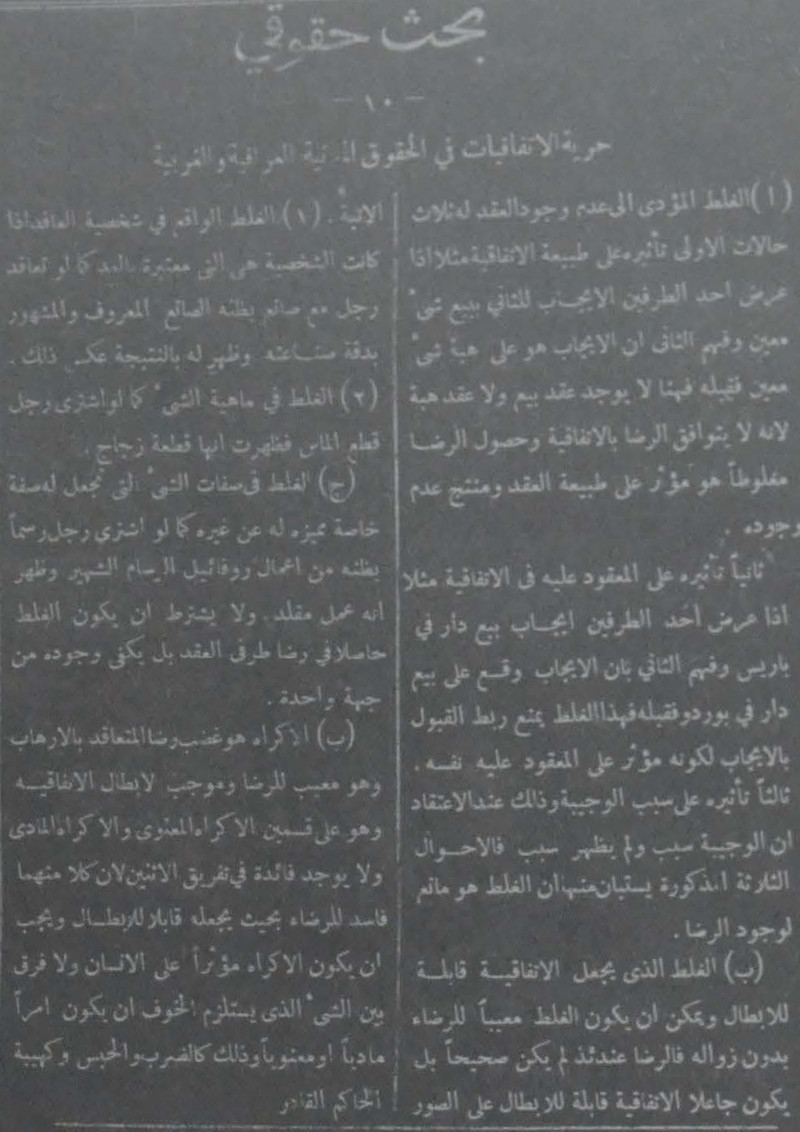 بحث حقوقي
— ١٠ —
حرية الاتفاقيات في الحقوق المدنية العراقية والغربية
(ا) الغلط المؤدى الى عدم وجود العقد له ثلاث
حالات الاولى تأثيره على طبيعة الاتفاقية مثلا اذا
عرض احد الطرفين الايجاب للثاني ببيع شىء
معين وفهم الثانى ان الايجاب هو على هبة شىء
معين فقبله فهنا لا يوجد عقد بيع ولا عقد هبة
لانه لا يتوافق الرضا بالاتفاقية وحصول الرضا
مغلوطاً هو مؤثر على طبيعة العقد ومنتج عدم
وجوده .
ثانياً تأثيره على المعقود عليه فى الاتفاقية مثلا
اذا عرض احد الطرفين ايجاب بيع دار في
باريس وفهم الثاني بان الايجاب وقع على بيع
دار في بوردو فقبله فهذا الغلط يمنع ربط القبول
بالايجاب لكونه مؤثر على المعقود عليه نفسه .
ثالثاً تأثيره على سبب الوجيبة وذلك عند الاعتقاد
ان الوجيبة سبب ولم يظهر سبب فالاحوال
الثلاثة المذكورة يستبان منها ان الغلط هو مانع
لوجود الرضا .
(ب) الغلط الذى يجعل الاتفاقية قابلة
للابطال ويمكن ان يكون الغلط معيباً للرضاء
بدون زواله فالرضا عندئذ لم يكن صحيحاً بل
يكون جاعلا الاتفاقية قابلة للابطال على الصور
الاتية . (١) الغلط الواقع في شخصية العاقد اذا
كانت الشخصية هى التى معتبرة بالعقد كما لو تعاقد
رجل مع صانع بظنه الصانع المعروف والمشهور
بدقة صناعته وظهر له بالنتيجة عكس ذلك .
(٢) الغلط في ماهية الشىء كما لو اشترى رجل
قطع الماس فظهرت انها قطعة زجاج .
(ج) الغلط فى صفات الشىء التى تجعل له صفة
خاصة مميزه له عن غيره كما لو اشترى رجل رسماً
بظنه من اعمال روفائيل الرسام الشهير وظهر
انه عمل مقلد . ولا يشترط ان يكون الغلط
حاصلا في رضا طرفى العقد بل يكفى وجوده من
جهة واحدة .
(ب) الاكراه هو غضب رضا المتعاقد بالارهاب
وهو معيب للرضا وموجب لابطال الاتفاقيه
وهو على قسمين الاكراه المعنوى والاكراه المادى
ولا يوجد فائدة في تفريق الاثنين لان كلا منهما
فاسد للرضاء بحيث يجعله قابلا للابطال ويجب
ان يكون الاكراه مؤثراً على الانسان ولا فرق
بين الشىء الذى يستلزم الخوف ان يكون امراً
مادياً او معنوياً وذلك كالضرب والحبس وكهيبة
الحاكم القادر